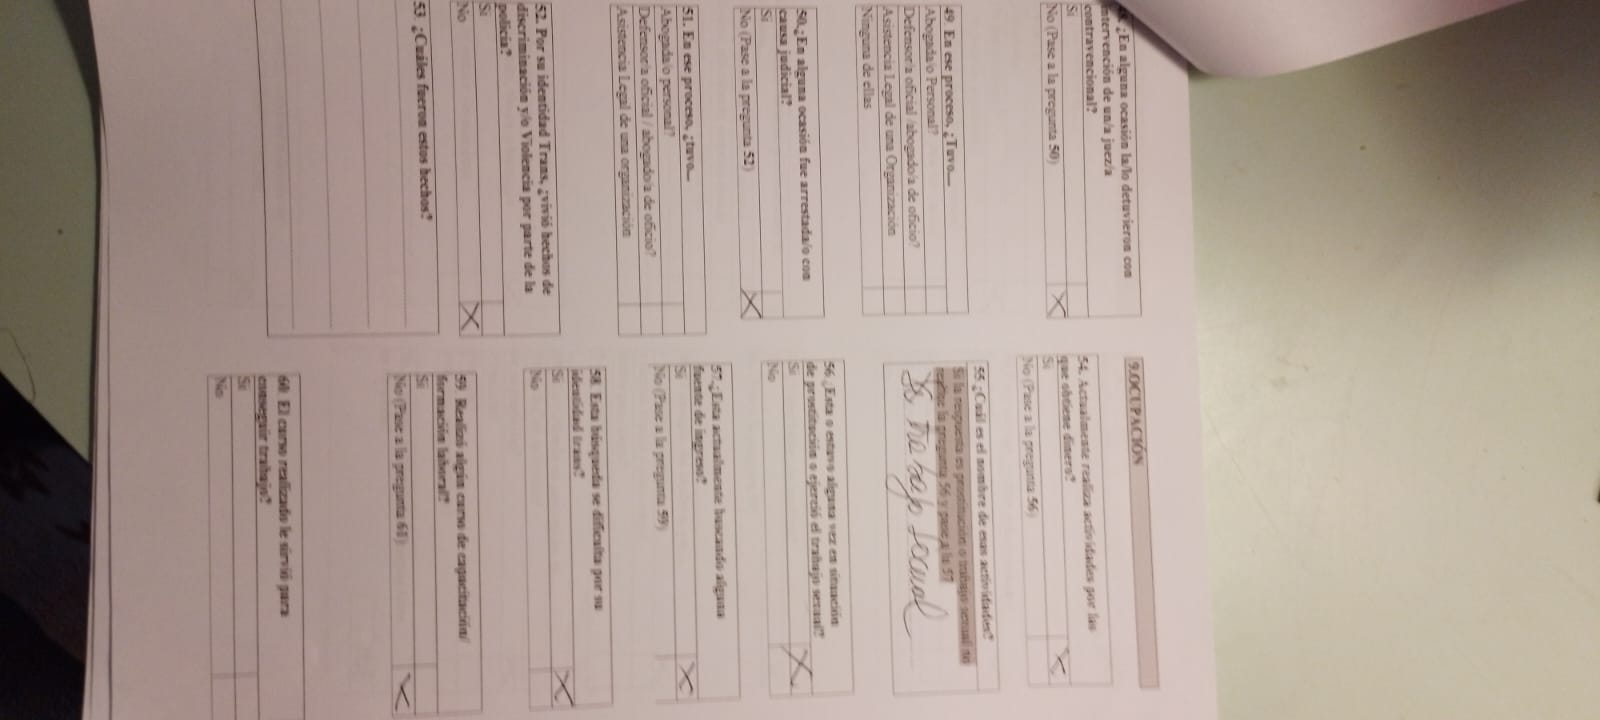 ¿En alguna ocasión la/lo detuvieron con
intervención de un/a juez/a
contravencional?
Si
No (Pase a la pregunta 50)
49. En ese proceso, ¿Tuvo...
Abogada/o Personal?
Defensor/a oficial /abogado/a de oficio?
Asistencia Legal de una Organización
Ninguna de ellas
50.¿En alguna ocasión fue arrestada/o con
causa judicial?
Si
No (Pase a la pregunta 52)
51. En ese proceso, ¿tuvo...
Abogada/o personal?
Defensor/a oficial / abogado/a de oficio?
Asistencia Legal de una organización
52. Por su identidad Trans, ¿vivió hechos de
discriminación y/o Violencia por parte de la
policía?
Si
No
53. ¿Cuáles fueron estos hechos?
9.OCUPACIÓN
54. Actualmente realiza actividades por las
que obtiene dinero?
Si
No (Pase a la pregunta 56)
55.¿Cuál es el nombre de esas actividades?
Si la respuesta es prostitución o trabajo sexual no
realice la pregunta 56 y pase a la 57
trabajo sexual
56.¿Esta o estuvo alguna vez en situación
de prostitución o ejerció el trabajo sexual?
Si
No
57.¿Esta actualmente buscando alguna
fuente de ingreso?
Si
No (Pase a la pregunta 59)
58. Esta búsqueda se dificulta por su
identidad trans?
Si
No
59. Realizó algún curso de capacitación/
formación laboral?
Si
No (Pase a la pregunta 61)
60. El curso realizado le sirvió para
conseguir trabajo?
Si
No